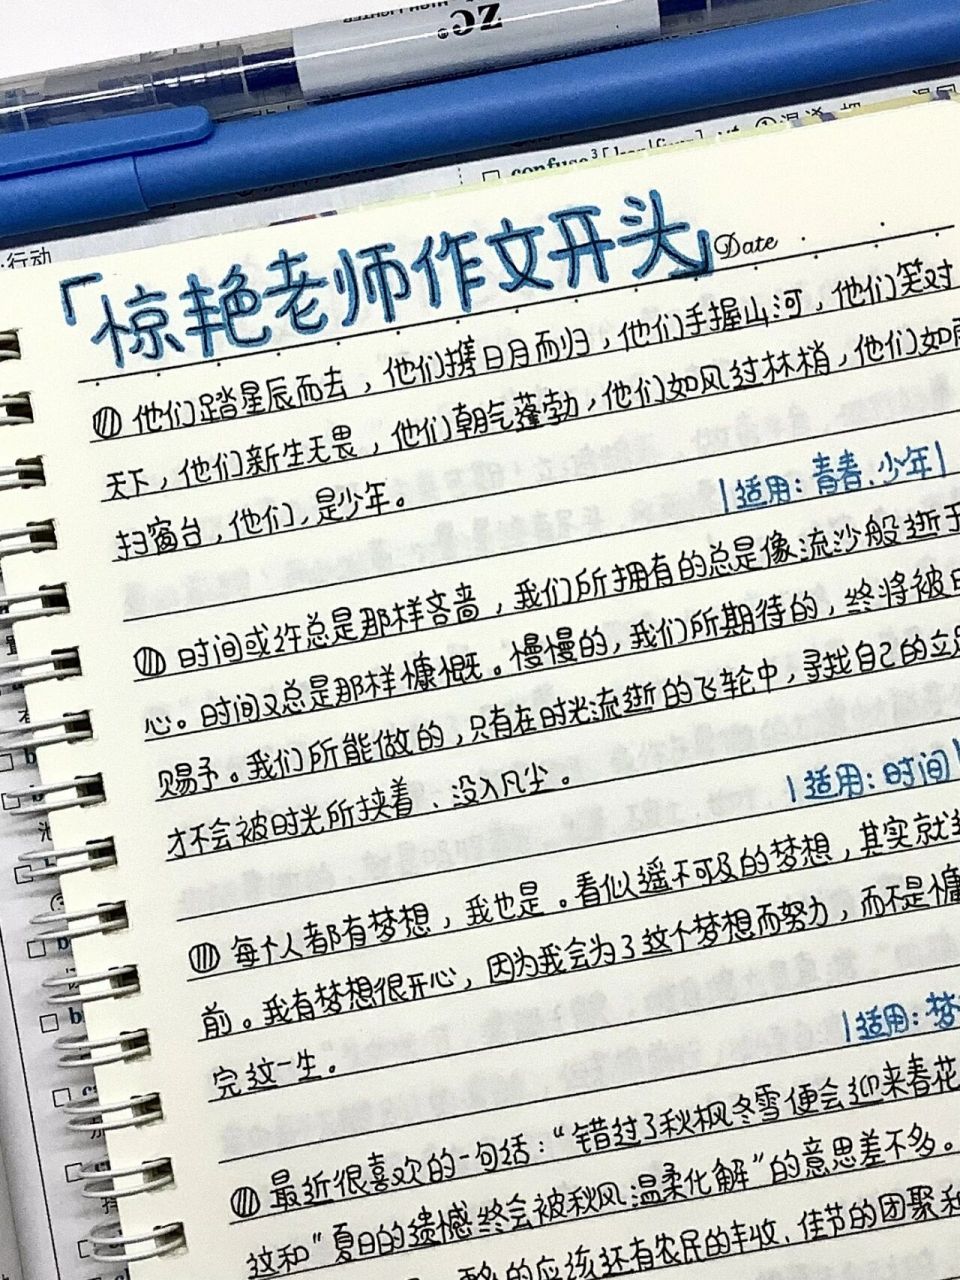 ZC®
confuse³
·行动
「惊艳老师作文开头」
Date
他们踏星辰而去，他们携日月而归，他们手握山河，他们笑对
天下，他们新生无畏，他们朝气蓬勃，他们如风过林梢，他们如雨
扫窗台，他们，是少年。
适用：青春、少年
时间或许总是那样吝啬，我们所拥有的总是像流沙般逝于
心。时间又总是那样慷慨。慢慢的，我们所期待的，终将被时
赐予。我们所能做的，只有在时光流逝的飞轮中，寻找自己的立足
才不会被时光所挟着、没入凡尘。
适用：时间
每个人都有梦想，我也是。看似遥不可及的梦想，其实就
前。我有梦想很开心，因为我会为了这个梦想而努力，而不是慵
完这一生。
适用：梦
最近很喜欢的一句话：“错过了秋枫冬雪便会迎来春花
这和“夏日的遗憾终会被秋风温柔化解”的意思差不多。
的应该还有农民的丰收、佳节的团聚和